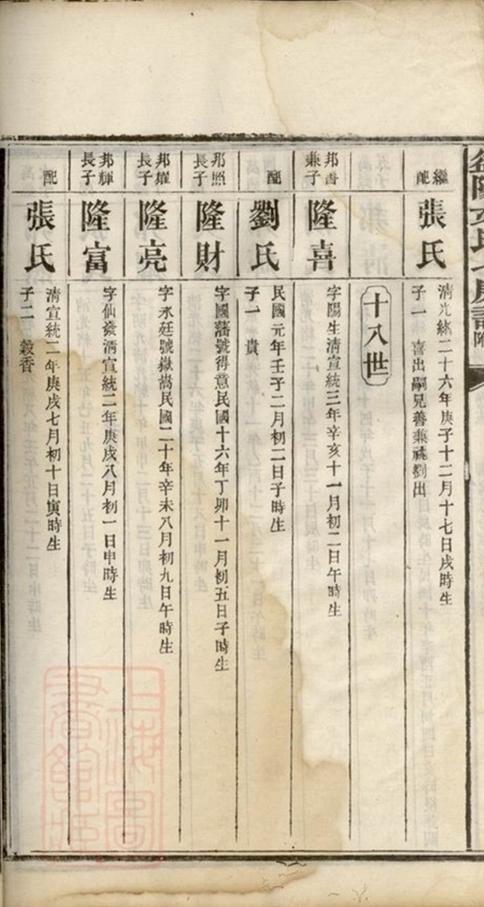 繼配
張氏
清光緒二十六年庚子十二月十七日戌時生
子一 喜出嗣兄善兼祧劉出
十八世
兼子
隆喜
字陽生清宣統三年辛亥十一月初二日午時生
配
劉氏
民國元年壬子二月初二日子時生
子一 貴
邦照
長子
隆財
字國藩號得意民國十六年丁卯十一月初五日子時生
邦耀
長子
隆亮
字永廷號嶽嵩民國二十年辛未八月初九日午時生
邦輝
長子
隆富
字仙嶽清宣統二年庚戌八月初一日申時生
配
張氏
清宣統二年庚戌七月初十日寅時生
子二 穀香
上海圖
書館藏